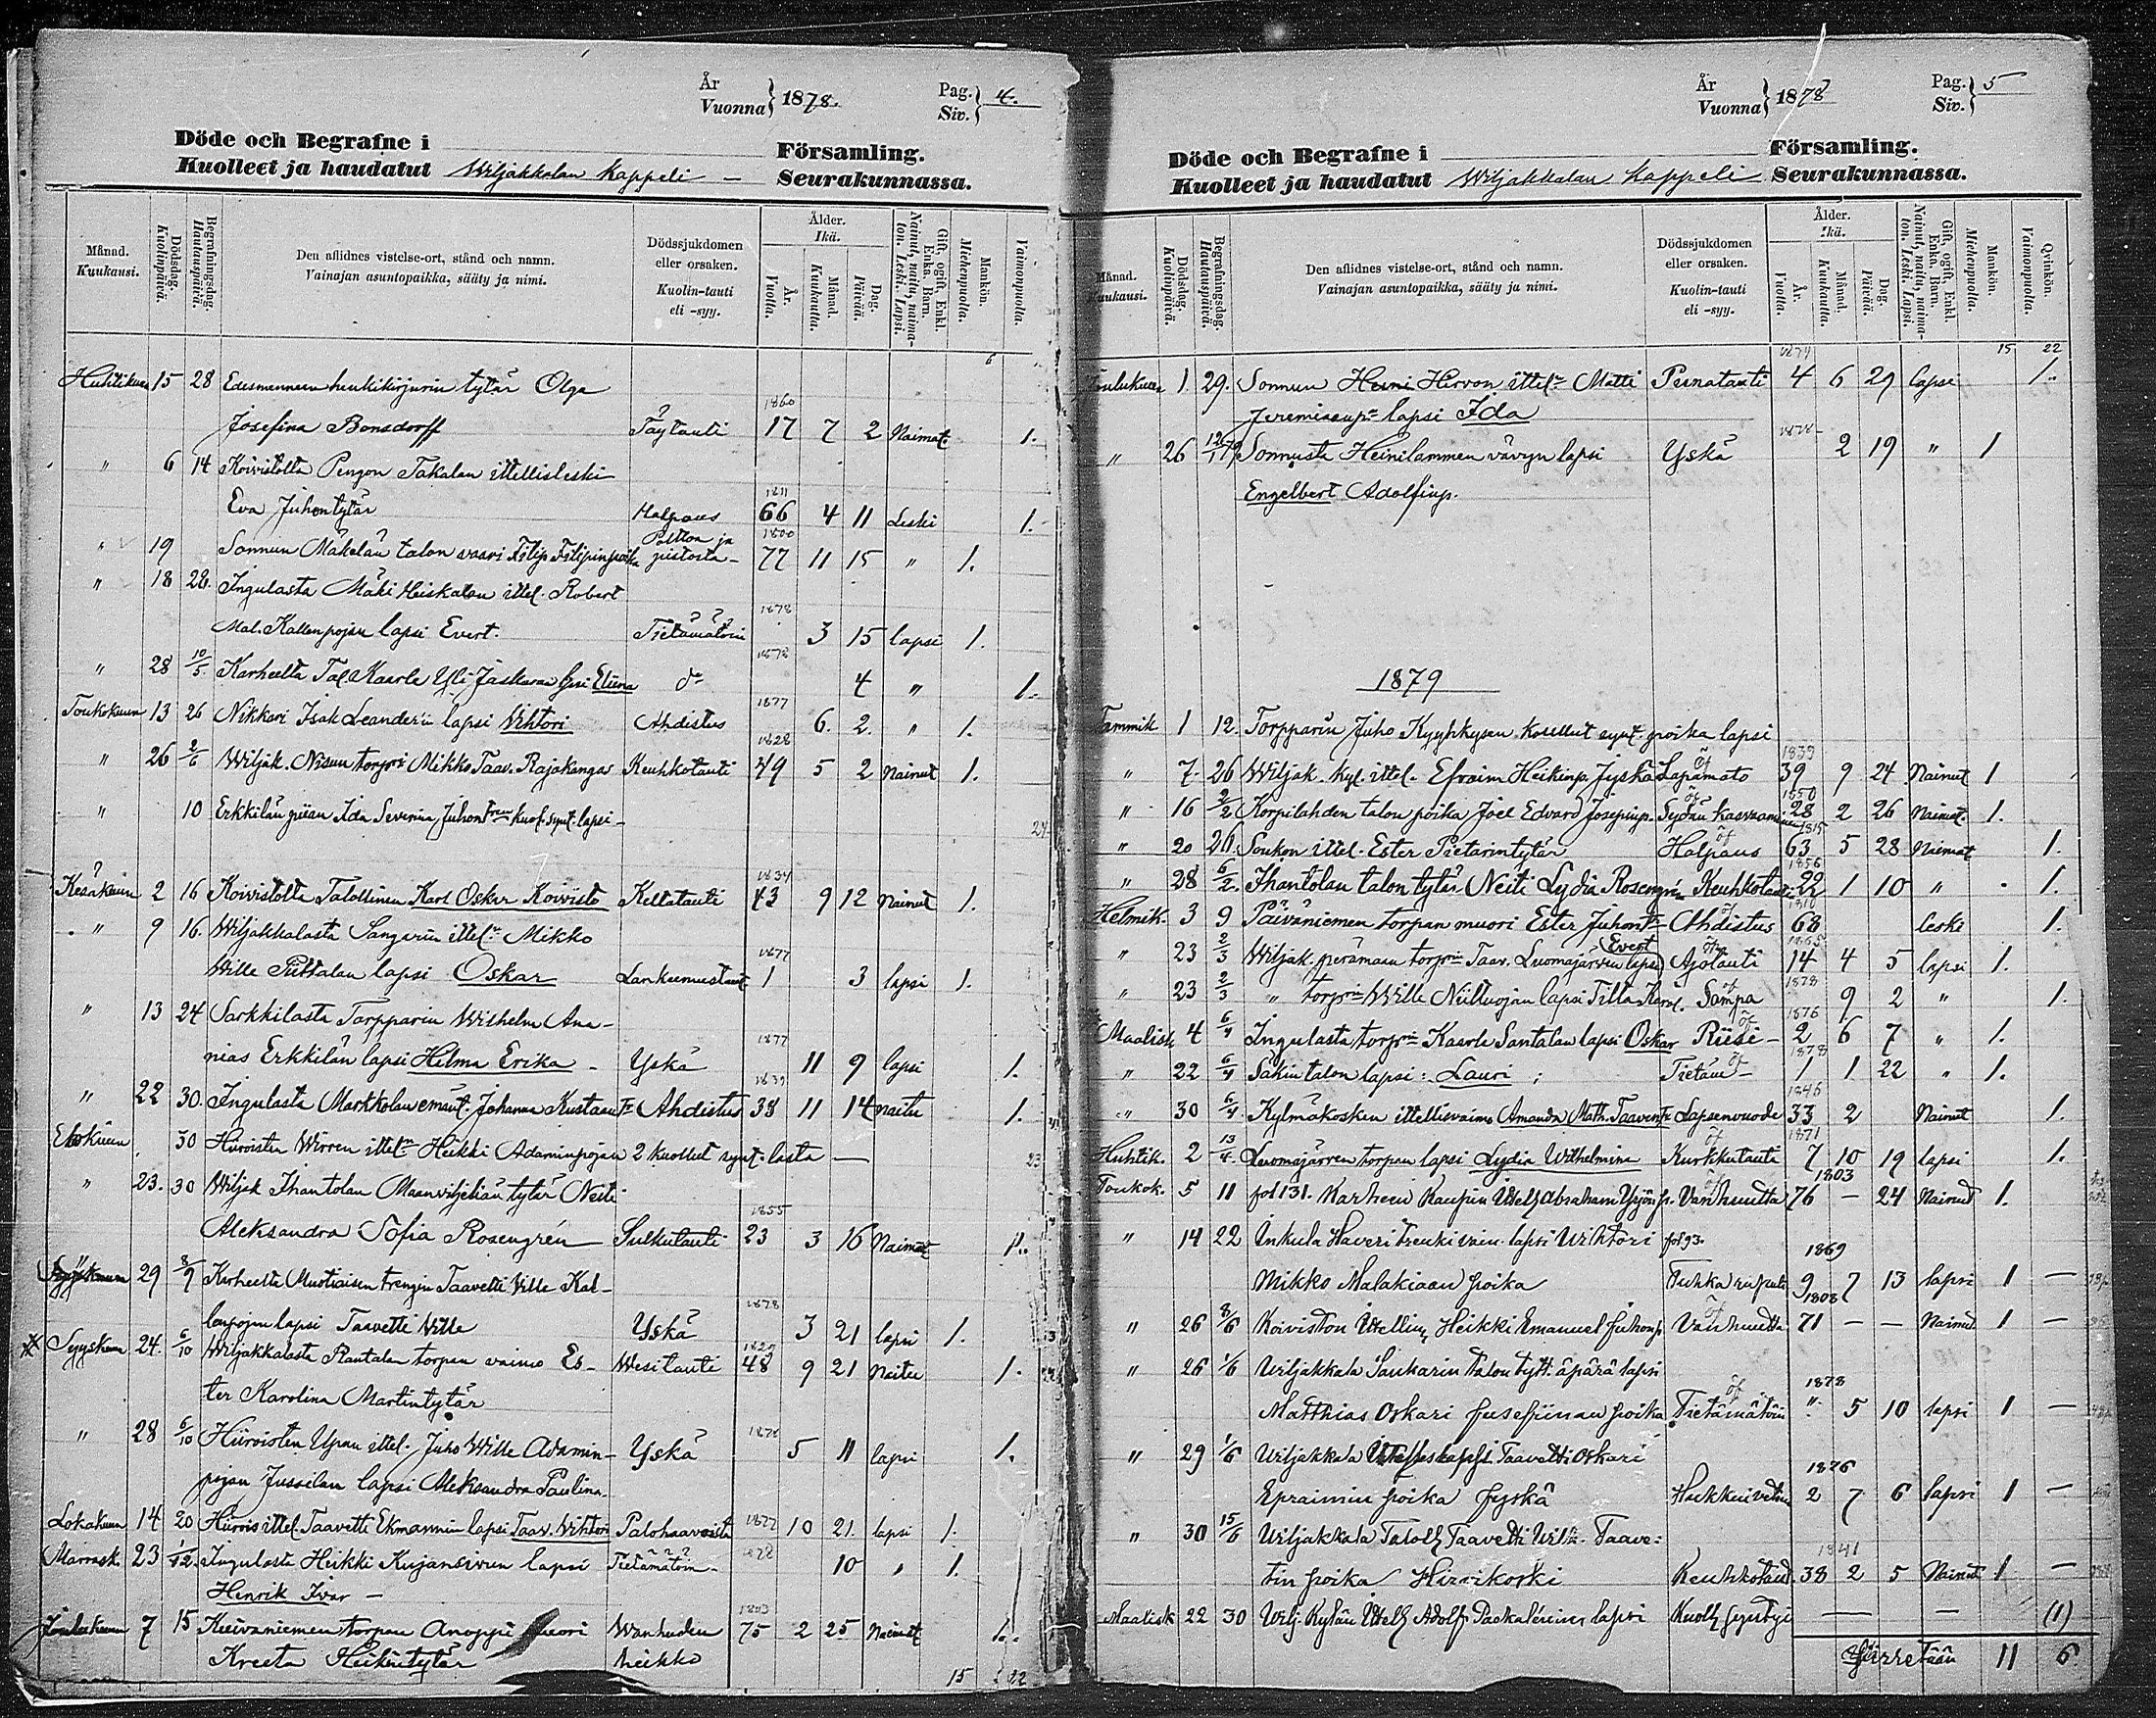 År
Vuonna } 1878.
Pag.
Siv. } 4.
Döde och Begrafne i Församling.
Kuolleet ja haudatut Wiljakkalan Kappeli – Seurakunnassa.
Månad. Kuukausi.
Dödsdag. Kuolinpäivä.
Begrafningsdag. Hautauspäivä.
Den aflidnes vistelse-ort, stånd och namn.
Vainajan asuntopaikka, sääty ja nimi.
Dödssjukdomen eller orsaken.
Kuolin-tauti eli -syy.
Ålder. Ikä.
År. Vuotta.
Månad. Kuukautta.
Dag. Päivää.
Gift, ogift, Enkl. Enka. Barn.
Nainut, naitu, naimaton. Leski. Lapsi.
Mankön. Miehenpuolta.
Vaimonpuolta.
6
Huhtikuun 15 28 Edesmenneen henkikirjurin tytär Olga
1860
Josefina Bonsdorff Täytauti 17 7 2 Naimat. 1.
" 6 14 Koivistolta Pengon Takalan ittellisleski
1811
Eva Juhontytär Halpaus 66 4 11 Leski 1.
Polton ja 1800
" 19 Sonnun Mäkelän talon vaari Filip Filipinpoika pistosta – 77 11 15 " 1.
" 18 28. Ingulasta Mäki Heiskalan ittel. Robert
1878
Mal. Kallenpojan lapsi Evert. Tietämätöin 3 15 lapsi 1.
1878
" 28 10/5 Karheelta Tal. Kaarle Yli Jaskaran Eliina do 4 " 1.
1877
Toukokuun 13 26 Nikkari Isak Leanderin lapsi Vihtori Ahdistus 6. 2. " 1.
1828
" 26 2/6 Wiljak. Nisun torpri Mikko Taav. Rajakangas Keuhkotauti 49 5 2 Nainut 1.
" 10 Erkkilän piian Ida Severina Juhontren kuol. synt. lapsi –
1834
Kesäkuun 2 16 Koivistolta Talollinen Karl Oskar Koivisto Keltatauti 43 9 12 Nainut 1.
" 9 16. Wiljakkalasta Sangarin ittel. Mikko
1877
Wille Piittalan lapsi Oskar 1 3 lapsi 1.
" 13 24 Sarkkilasta Torpparin Wilhelm Ana-
1877
nias Erkkilän lapsi Helma Erika – Yskä 11 9 lapsi 1.
1839
" 22 30. Ingulasta Markkolan emänt. Johanna Kustaan Tr Ahdistus 38 11 14 naitu 1.
Elokuun 30 Hiiroisten Wirren ittel. Heikki Adaminpojan 2 kuollut synt. lasta –
" 23. 30 Wiljak Ihantolan Maanviljeliän tytär Neiti
1855
Aleksandra Sofia Rosengrén Sulkutauti 23 3 16 Naimat 1.
29 8/9 Karheelta Mustiaisen trengin Taavetti Ville Kal-
1878
lenpojan lapsi Taavetti Ville Yskä 3 21 lapsi 1.
Syyskuun 24. 6/10 Wiljakkalasta Rantalan torpan vaimo Es- Wesitauti 48 9 21 Naitu 1.
ter Karolina Martintytär
" 28 6/10 Hiiroisten Upan ittel. Juho Wille Adamin- Yskä 1878 5 11 lapsi 1.
pojan Jussilan lapsi Aleksandra Paulina.
Lokakuun 14 20 Hiirois ittel. Taavetti Ekmannin lapsi Taav. Vihtori Palohaavoista 1877 10 21. lapsi 1.
Marrask. 23 1/12. Ingulasta Heikki Kujansuun lapsi Tietämätöin – 1878 10 " 1.
Henrik Ivar –
1803
Joulukuun 7 15 Kuivaniemen torpan Anoppi muori Wanhuden 75 2 25 Nainut 1.
Kreeta Heikintytär heikko
15 22
År
Vuonna } 1878
Pag.
Siv. } 5
Döde och Begrafne i Församling.
Kuolleet ja haudatut Wiljakkalan Kappeli Seurakunnassa.
Månad. Kuukausi.
Dödsdag. Kuolinpäivä.
Begrafningsdag. Hautauspäivä.
Den aflidnes vistelse-ort, stånd och namn.
Vainajan asuntopaikka, sääty ja nimi.
Dödssjukdomen eller orsaken.
Kuolin-tauti eli -syy.
Ålder. Ikä.
År. Vuotta.
Månad. Kuukautta.
Dag. Päivää.
Gift, ogift, Enkl. Enka. Barn.
Nainut, naitu, naimaton. Leski. Lapsi.
Mankön. Miehenpuolta.
Qvinkön. Vaimonpuolta.
1874 15 22
Joulukuun 1. 29. Sonnun Hirvon ittel. Matti Pernatauti 4 6 29 lapsi 1.
Jeremiaanp. lapsi Ida
1878
" 26 12/1 79 Sonnusta Heinilammen vävyn lapsi Yskä 2 19 " 1
Engelbert Adolfinp.
1879
Tammik 1 12. Torpparin Juho Kyyhkysen kuollut synt. poika lapsi
1839
" 7. 26 Wiljak. kyl. ittel. Efraim Heikinp. Jyskä Lapamato 39 9 24. Nainut 1
1850
" 16 2/2 Korpilahden talon poika Joel Edvard Josepinp. Sydän kasvaaminen 28 2 26 Naimat. 1.
1815
" 20 26. Soukon ittel. Ester Pietarintytär Halpaus 63 5 28 Naimat 1.
1856
" 28 6/2. Ihantolan talon tytär Neiti Lydia Rosengrén Keuhkotauti 22 1 10 " 1.
1810
Helmik. 3 9 Päiväniemen torpan muori Ester Juhont. Ahdistus 68 leski 1.
1865
" 23 2/3 Wiljak. perämaan torprin Taav. Luomajärven lapsi Evert Ajotauti 14 4 5 lapsi 1.
1878
" 23 2/3 " torprin Wille Niittuojan lapsi Tilta Karol. Sampa 9 2 " 1.
1876
Maalisk 4 6/4 Ingulasta torprin Kaarle Santalan lapsi Oskar Riisi – 2 6 7 " 1.
1878
" 22 6/4 Säkin talon lapsi: Lauri ; Tietäm – 1 1 22 " 1.
1846
" 30 6/4 Kylmäkosken ittellisvaimo Amanda Math. Taavent. Lapsenvuode 33 2 Nainut 1.
1871
Huhtik. 2 13/4. Luomajärven torpan lapsi Lydia Wilhelmina Kurkkutauti 7 10 19 lapsi 1.
1803
Toukok. 5 11 fol 131. Karheen Kaupin Ittell. Abraham Yrjönp. Vanhuutta 76 – 24 Nainut 1.
" 14 22 Inkula Haveri trenki vain. lapsi Wihtori fol 93.
1869
Mikko Malakiaan poika Tuhkarupuli 9 7 13 lapsi 1 –
1808
" 26 8/6 Koiviston Ittelline Heikki Emanuel Juhonp. Vanhuutta 71 – – Nainut 1 –
" 26 1/6 Wiljakkala Saukarin talon tytt. äpärä lapsi
1878
Matthias Oskari Jusefiinan poika Tietämätöin " 5 10 lapsi 1 –
" 29 1/6 Wiljakkala Taavetti Oskari
1876
Epraimin poika Jyskä 2 7 6 lapsi 1 –
" 30 15/6 Wiljakkala Taloll. Taavetti Wilh. Taave:
1841
tin poika Hirvikoski Keuhkotaud. 38 2 5 Nainut 1 –
Maalisk 22 30 Wilj. Kylän Ittell. Adolf lapsi Kuoll. – – (1)
Siirretään 11 6